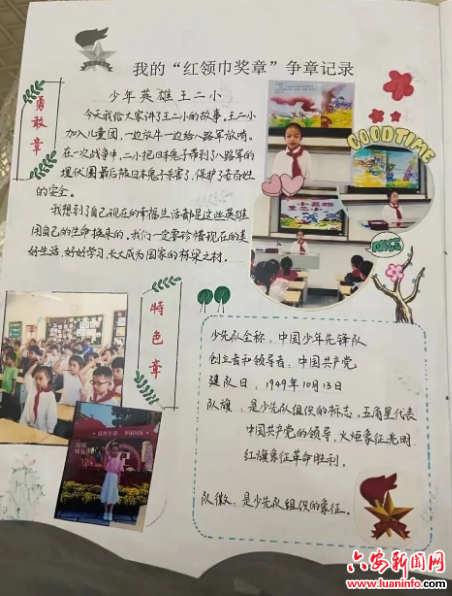 我的“红领巾奖章”争章记录
勇敢章
少年英雄王二小
今天我给大家讲了王二小的故事,王二小
加入儿童团,一边放牛一边给八路军放哨。
在一次战争中,二小把日本鬼子带到了八路军的
埋伏圈最后被日本鬼子杀害了,保护了老百姓
的安全。
我想到了自己现在的幸福生活都是这些英雄
用自己的生命换来的,我们一定要珍惜现在的美
好生活,好好学习,长大成为国家的栋梁之材。
GOOD TIME
小英雄
王二小
NICE
特色章
少先队全称:中国少年先锋队
创立者和领导者:中国共产党
建队日:1949年10月13日
队旗:是少先队组织的标志,五角星代表
中国共产党的领导,火炬象征光明,
红旗象征革命胜利。
队徽:是少先队组织的象征。
六安新闻网
www.luaninfo.com